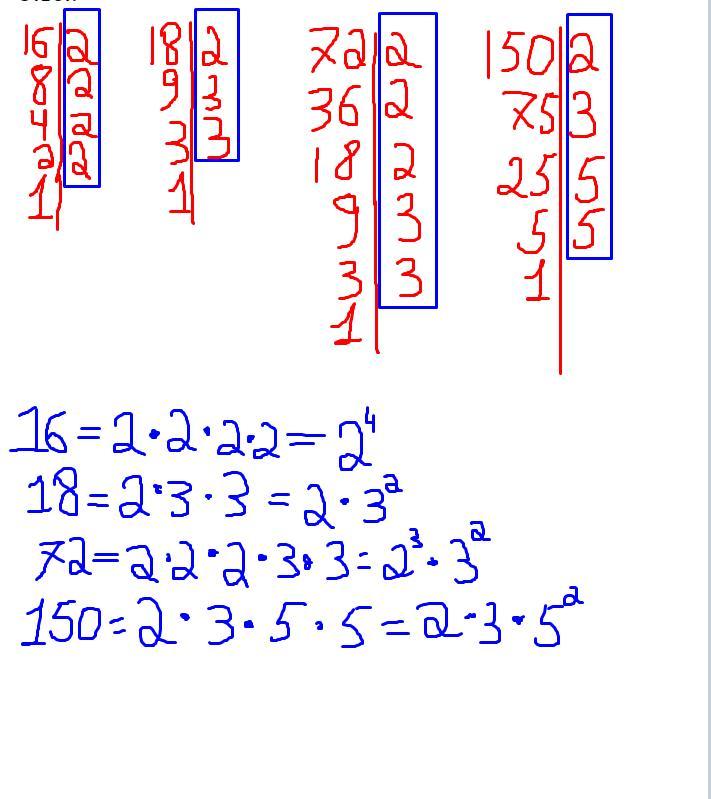 16 2
8 2
4 2
2 2
1
18 2
9 3
3 3
1
72 2
36 2
18 2
9 3
3 3
1
150 2
75 3
25 5
5 5
1
16 = 2 · 2 · 2 · 2 = 2⁴
18 = 2 · 3 · 3 = 2 · 3²
72 = 2 · 2 · 2 · 3 · 3 = 2³ · 3²
150 = 2 · 3 · 5 · 5 = 2 · 3 · 5²